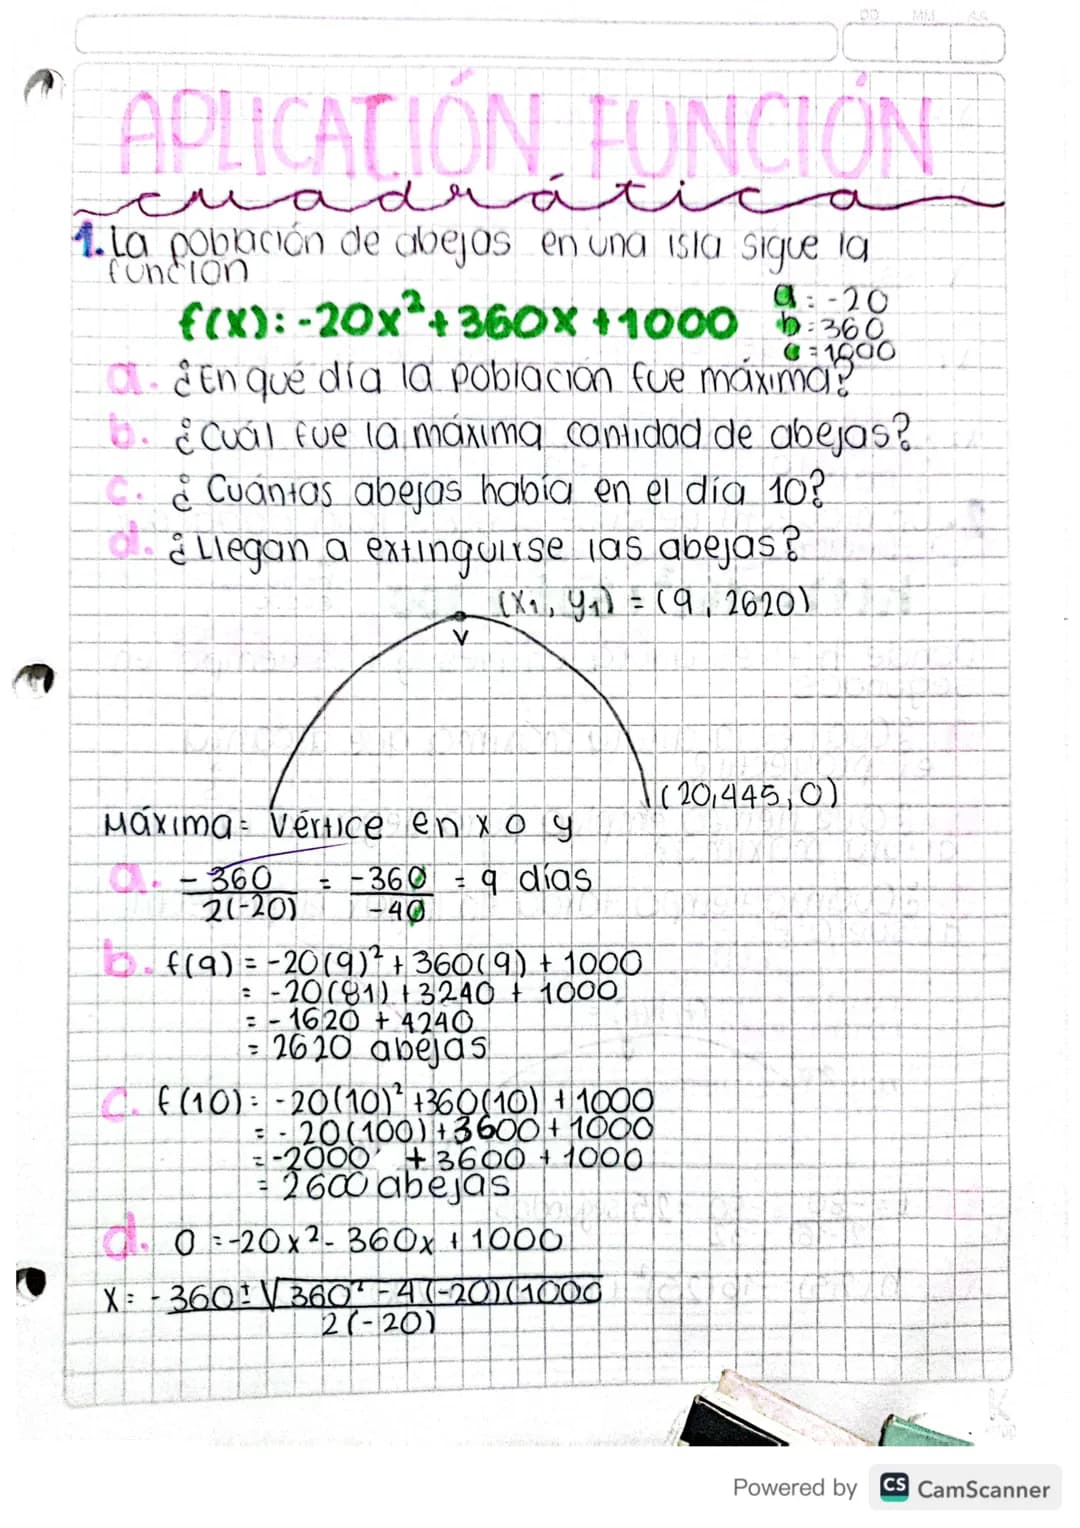 DD MM AA
APLICACIÓN FUNCIÓN
cuadrática
1. La población de abejas en una isla sigue la
función
f(x): -20x² + 360x + 1000
a: -20
b: 360
c = 1000
a. ¿En qué día la población fue máxima?
b. ¿Cuál fue la máxima cantidad de abejas?
c. ¿Cuántas abejas había en el día 10?
d. ¿Llegan a extinguirse las abejas?
(x₁, y₁) = (9, 2620)
V
(20,445, 0)
Máxima = Vértice en x o y
a. -360/2(-20) = -360/-40 = 9 días
b. f(9) = -20(9)² + 360(9) + 1000
= -20(81) + 3240 + 1000
= -1620 + 4240
= 2620 abejas
c. f(10): -20(10)² + 360(10) + 1000
= -20(100) + 3600 + 1000
= -2000 + 3600 + 1000
= 2600 abejas
d. 0 = -20x² - 360x + 1000
x = -360 ± √360² - 4(-20)(1000
2(-20)
Powered by CS CamScanner